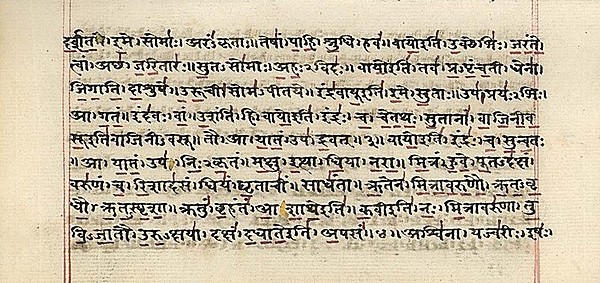 दर्शत। इमे। सोमाः। अरंऽकृताः॥ तेषां। पाहि। श्रुधि। हवं॥ वायो इति। उक्थेभिः। जरंते।
त्वां। अच्छ। जरितारः॥ सुतऽसोमाः। अहःऽविदः॥ वायो इति। तव। प्रऽपृंचती। धेना।
जिगाति। दाशुषे॥ उरूची। सोमऽपीतये॥ इंद्रवायू इति। इमे। सुताः। उप। प्रयःऽभिः।
आ। गतं॥ इंदवः। वां। उशंति। हि॥ वायो इति। इंद्रः। च। चेतथः। सुतानां। वाजिनीव
सू इति वाजिनीऽवसू॥ तौ। आ। यातं। उप। द्रवत्॥ ३॥ वायो इति। इंद्रः। च। सुन्वतः।
॥ आ। यातं। उप। निःऽकृतं॥ मक्षु। इत्था। धिया। नरा॥ मित्रं। हुवे। पूतऽदक्षं।
वरुणं। च। रिशादसं॥ धियं। घृताचीं। साधंता॥ ऋतेन। मित्रावरुणौ। ऋतऽवृ
धौ। ऋतऽस्पृशा॥ क्रतुं। बृहंतं। आशाथे इति॥ कवी इति। नः। मित्रावरुणा। तु
विऽजातौ। उरुऽक्षया॥ दक्षं। दधाते इति। अपसं॥ ४॥ अश्विना। यज्वरीः। इषः।